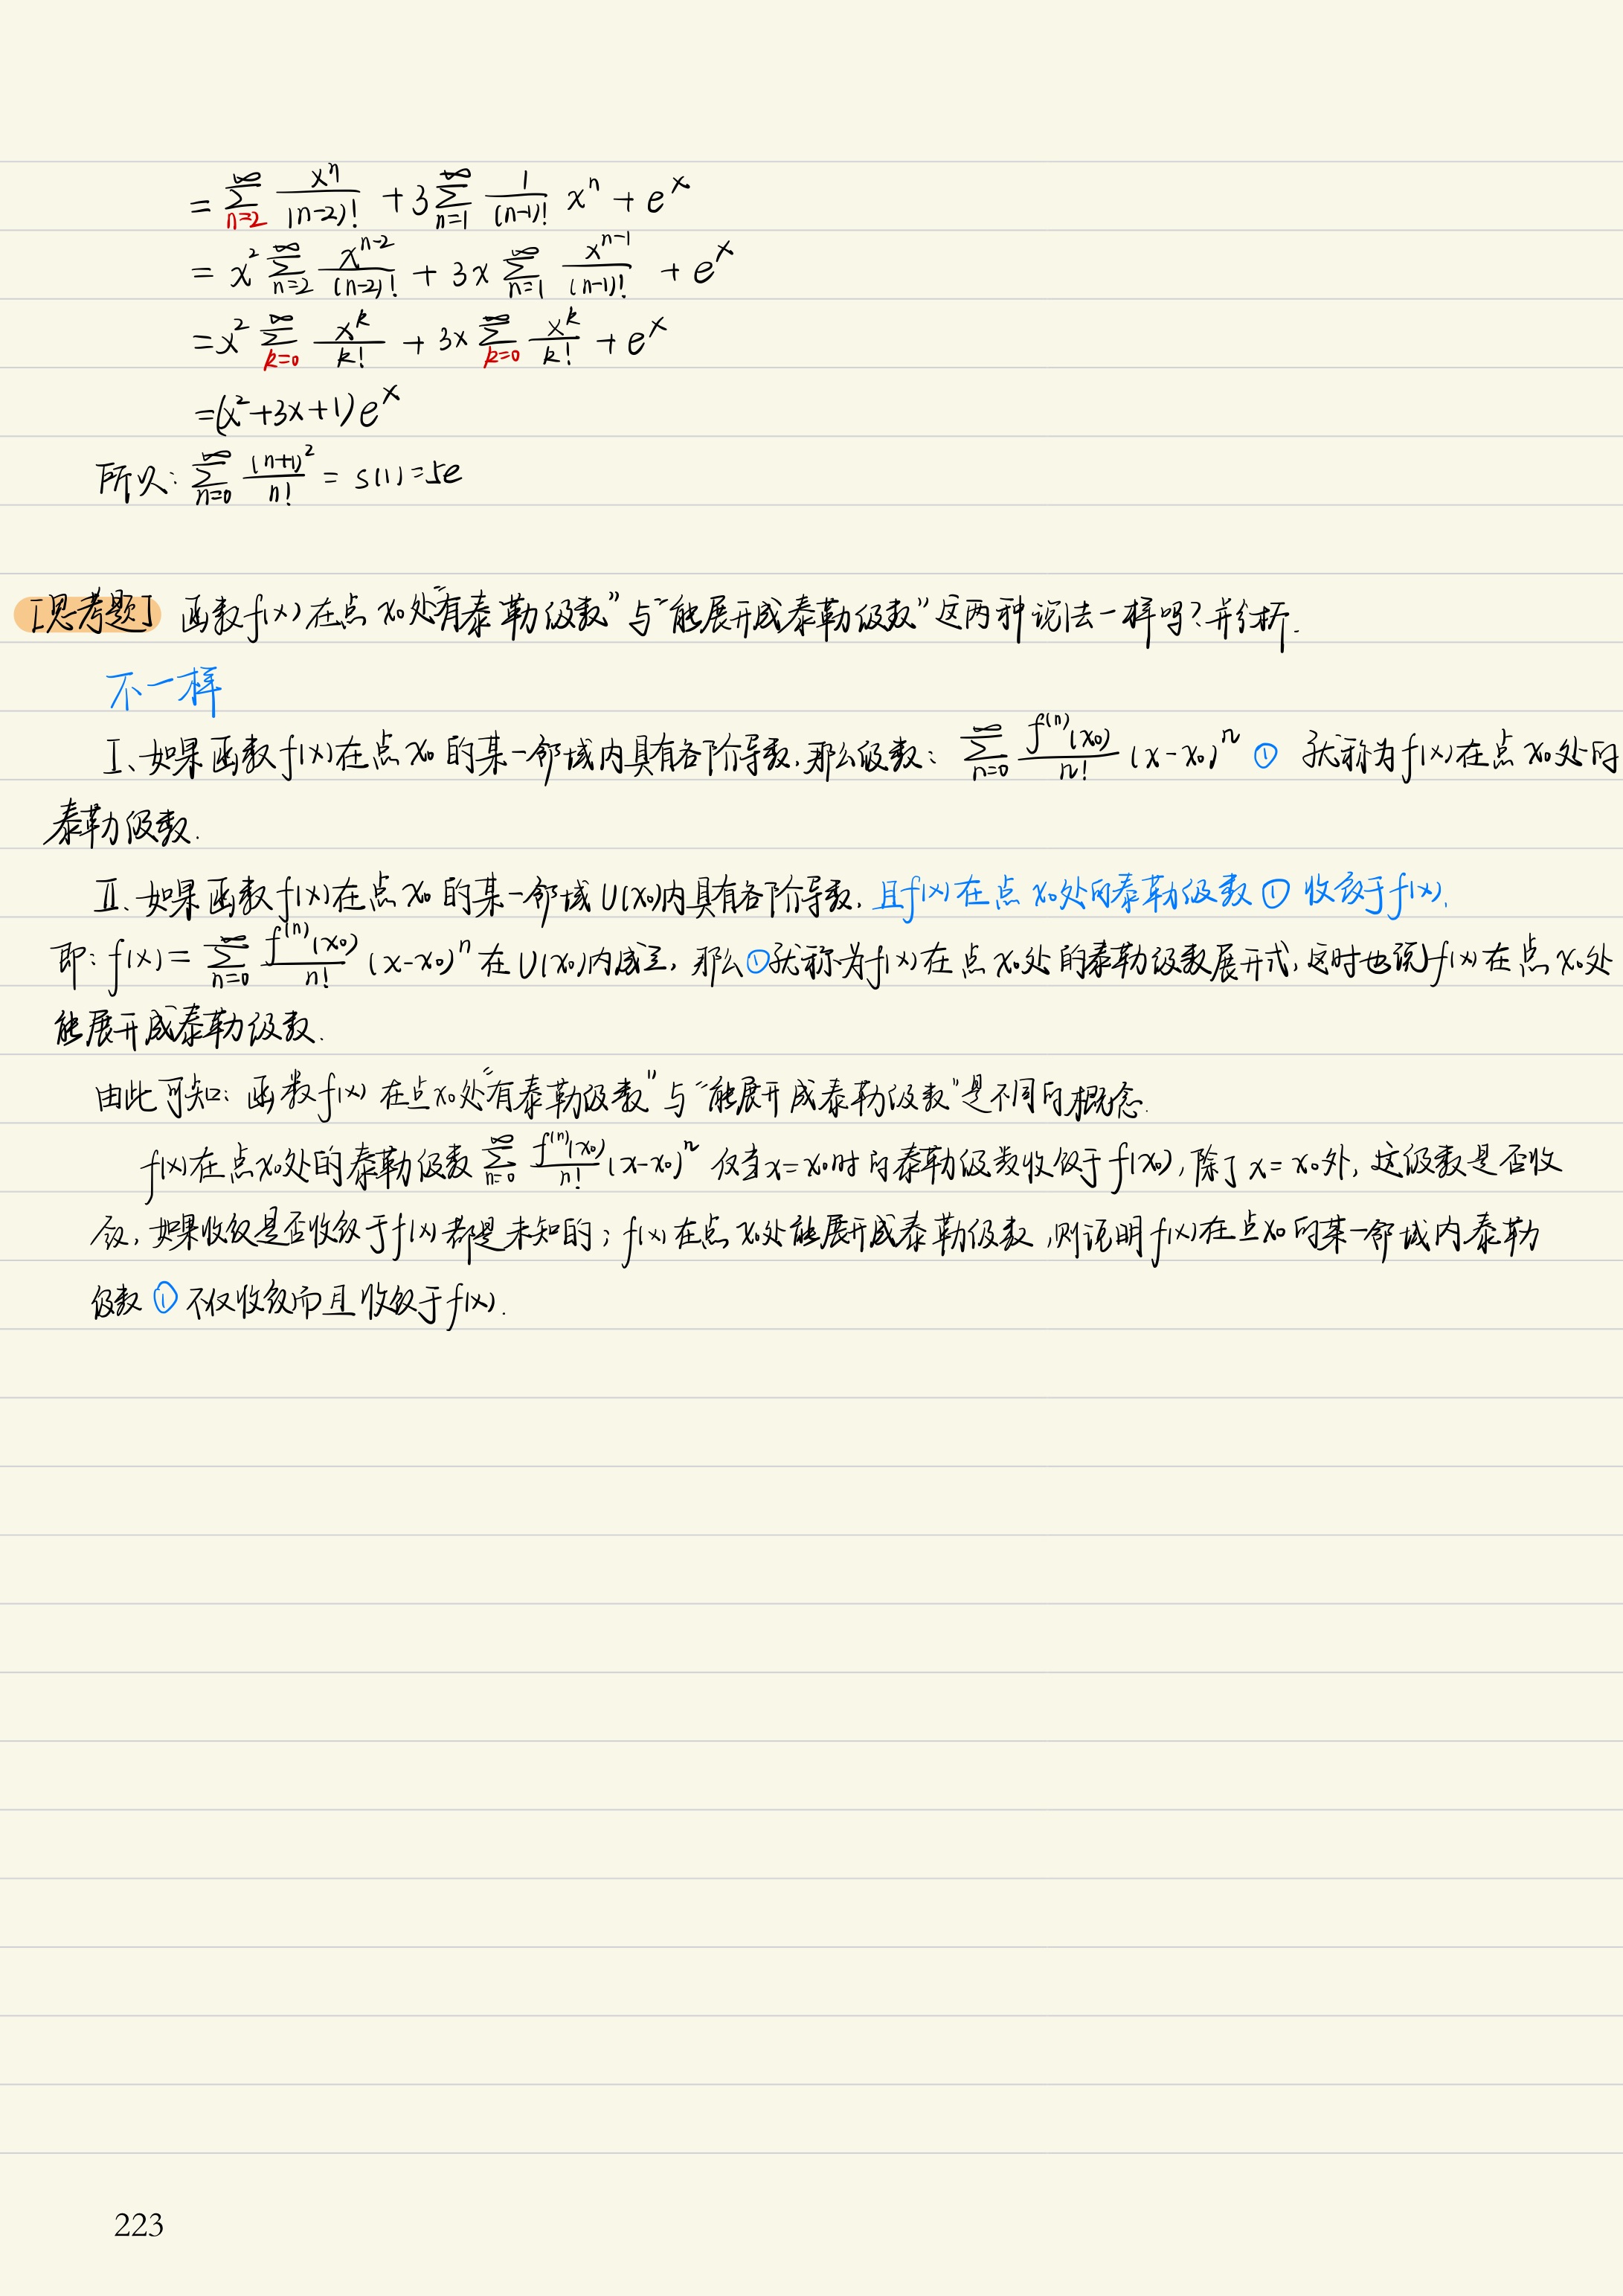 = ∑_{n=2}^{∞} x^n/(n-2)! + 3∑_{n=1}^{∞} 1/(n-1)! x^n + e^x
= x² ∑_{n=2}^{∞} x^{n-2}/(n-2)! + 3x ∑_{n=1}^{∞} x^{n-1}/(n-1)! + e^x
= x² ∑_{k=0}^{∞} x^k/k! + 3x ∑_{k=0}^{∞} x^k/k! + e^x
= (x²+3x+1)e^x
所以: ∑_{n=0}^{∞} (n+1)²/n! = s(1) = 5e
[思考题] 函数f(x)在点x₀处“有泰勒级数”与“能展开成泰勒级数”这两种说法一样吗?并分析.
不一样
Ⅰ、如果函数f(x)在点x₀的某一邻域内具有各阶导数,那么级数: ∑_{n=0}^{∞} f^{(n)}(x₀)/n! (x-x₀)^n ① 就称为f(x)在点x₀处的
泰勒级数.
Ⅱ、如果函数f(x)在点x₀的某一邻域U(x₀)内具有各阶导数,且f(x)在点x₀处的泰勒级数①收敛于f(x).
即: f(x) = ∑_{n=0}^{∞} f^{(n)}(x₀)/n! (x-x₀)^n 在U(x₀)内成立,那么①就称为f(x)在点x₀处的泰勒级数展开式,这时也说f(x)在点x₀处
能展开成泰勒级数.
由此可知:函数f(x)在点x₀处“有泰勒级数”与“能展开成泰勒级数”是不同的概念.
f(x)在点x₀处的泰勒级数 ∑_{n=0}^{∞} f^{(n)}(x₀)/n! (x-x₀)^n 仅当x=x₀时的泰勒级数收敛于f(x₀),除了x=x₀外,这级数是否收
敛,如果收敛是否收敛于f(x)都是未知的;f(x)在点x₀处能展开成泰勒级数,则说明f(x)在点x₀的某一邻域内泰勒
级数①不仅收敛而且收敛于f(x).
223